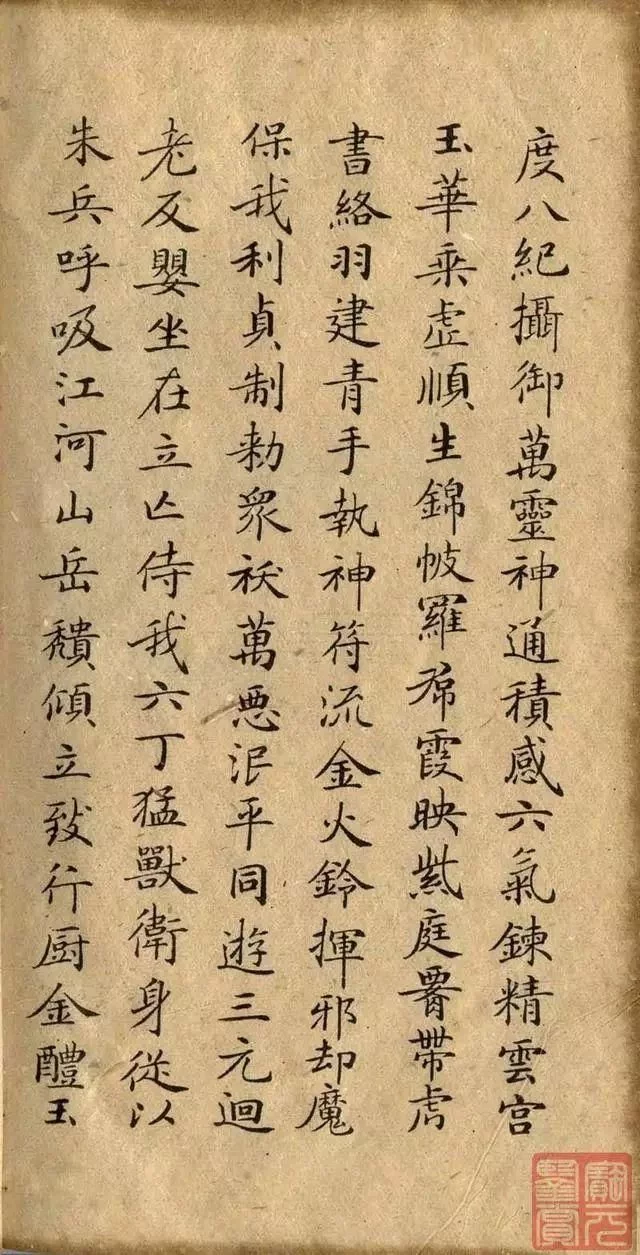 度八紀攝御萬靈神通積感六氣鍊精雲宮
玉華乘虛順生錦帔羅帬霞映紫庭腎帶虎
書絡羽建青手執神符流金火鈴揮邪却魔
保我利貞制勑眾祅萬惡泯平同遊三元迴
老反嬰坐在立亾侍我六丁猛獸衛身從以
朱兵呼吸江河山岳穨傾立致行厨金醴玉